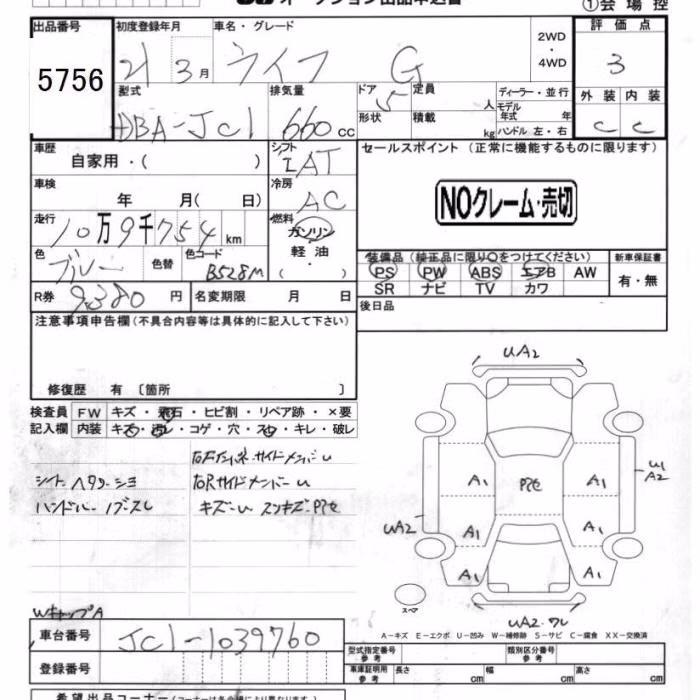 オークション出品申込書
①会場控
出品番号 初度登録年月 車名・グレード 評価点
5756 21 3月 ライフ G 2WD ・ 4WD 3
型式 排気量 ドア 定員 ディーラー・並行 外装 内装
DBA-JC1 660cc 5 人 モデル年式 年 C C
形状 積載 kg ハンドル 左・右
車歴 自家用・( ) シフト IAT セールスポイント (正常に機能するものに限ります)
車検 年 月( 日) 冷房 AC
NOクレーム・売切
走行 10万9千754km 燃料 ガソリン・軽油・
色 ブルー 色替 色コード B528M
装備品 (純正品に限り○をつけてください) 新車保証書
PS PW ABS エアB AW 有・無
SR ナビ TV カワ
R券 9,380円 名変期限 月 日 後日品
注意事項申告欄(不具合内容等は具体的に記入して下さい)
修復歴 有 〔箇所 〕
検査員記入欄 FW キズ・飛石・ヒビ割・リペア跡・×要
内装 キズ・汚レ・コゲ・穴・スレ・キレ・破レ
右Fインパネ・サイドメンバーU
シート ヘタリ・シヨ 右Rサイドメンバー U
ハンドルバーノブスレ キズ-U スリキズ・Pホセ
UA2
A1 Pホセ A1 U1 A2
UA2 A1 A1
A1 A1
スペア
UA2・ワレ
WキャップA
A-キズ E-エクボ U-凹み W-補修跡 S-サビ C-腐食 XX-交換済
車台番号 JC1-1039760 型式指定番号 参考 類別区分番号 参考
登録番号 車庫証明用 参考 長さ cm 幅 cm 高さ cm
希望出品コーナー